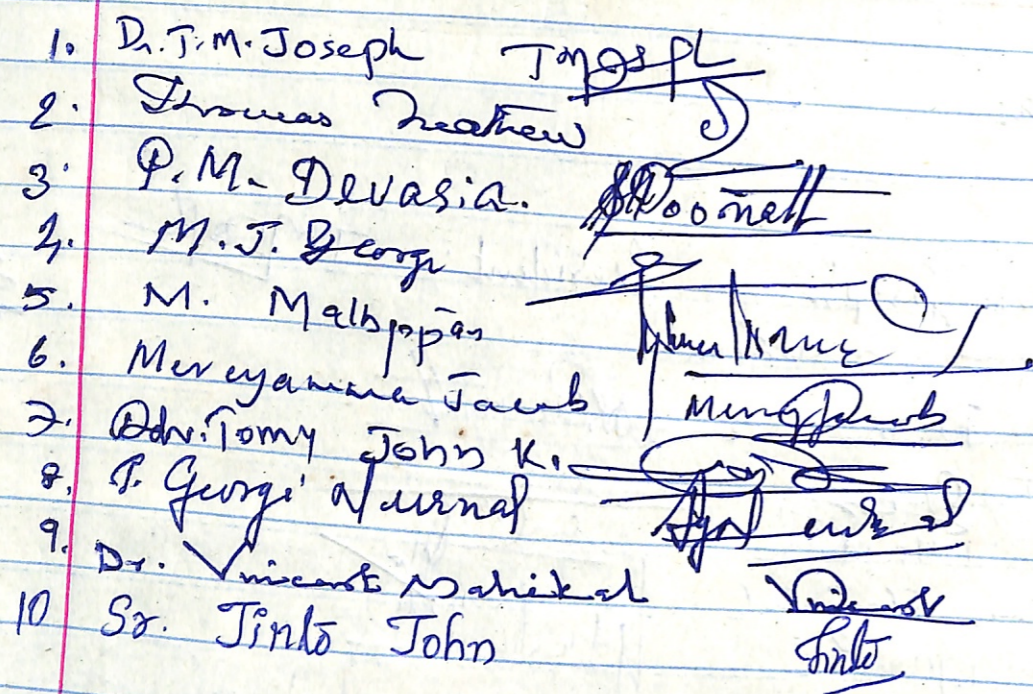 1. Dr. T. M. Joseph TMJosph
2. Thomas Mathew
3. P. M. Devasia.
4. M. J. George
5. M. Mathppan
6. Mereyamma Jacob
7. Adv. Tomy John K.
8. P. George
9. Dr. Vincent Vincent
10 Sr. Jinto John Jinto